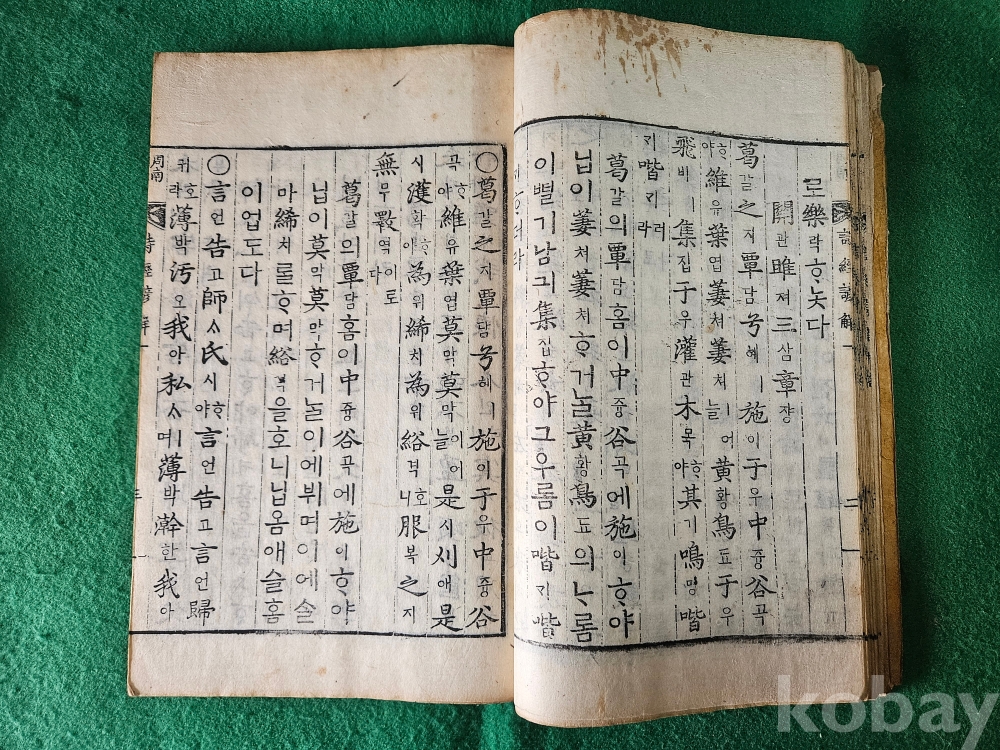 로樂락ᄒᆞ놋다
關관雎져三삼章쟝
葛갈之지覃담兮혜ㅣ施이于우中즁谷곡
ᄒᆞ야維유葉엽萋쳐萋쳐ㅣ어늘黃황鳥됴于우
飛비ㅣ集집于우灌관木목ᄒᆞ야其기鳴명喈
기喈기러라
葛갈의覃담홈이中즁谷곡에施이ᄒᆞ야
닙이萋쳐萋쳐ᄒᆞ거ᄂᆞᆯ黃황鳥됴의ᄂᆞ롬
이별기남긔集집ᄒᆞ야그우롬이喈기喈
詩經諺解一
○葛갈之지覃담兮혜ㅣ施이于우中즁谷
곡ᄒᆞ야維유葉엽莫막莫막이어늘是시刈애是
시濩확ᄒᆞ야為위絺치為위綌격호니服복之지
無무斁역이로다
葛갈의覃담홈이中즁谷곡에施이ᄒᆞ야
닙이莫막莫막ᄒᆞ거ᄂᆞᆯ이에뷔며이에ᄉᆞᆯ
마絺치롤ᄒᆞ며綌격을호니닙옴애슬홈
이업도다
○言언告고師ᄉᆞ氏시ᄒᆞ야言언告고言언歸
귀호라薄박汚오我아私ᄉᆞㅣ며薄박澣한我아
周南
詩經諺解一
三
kobay